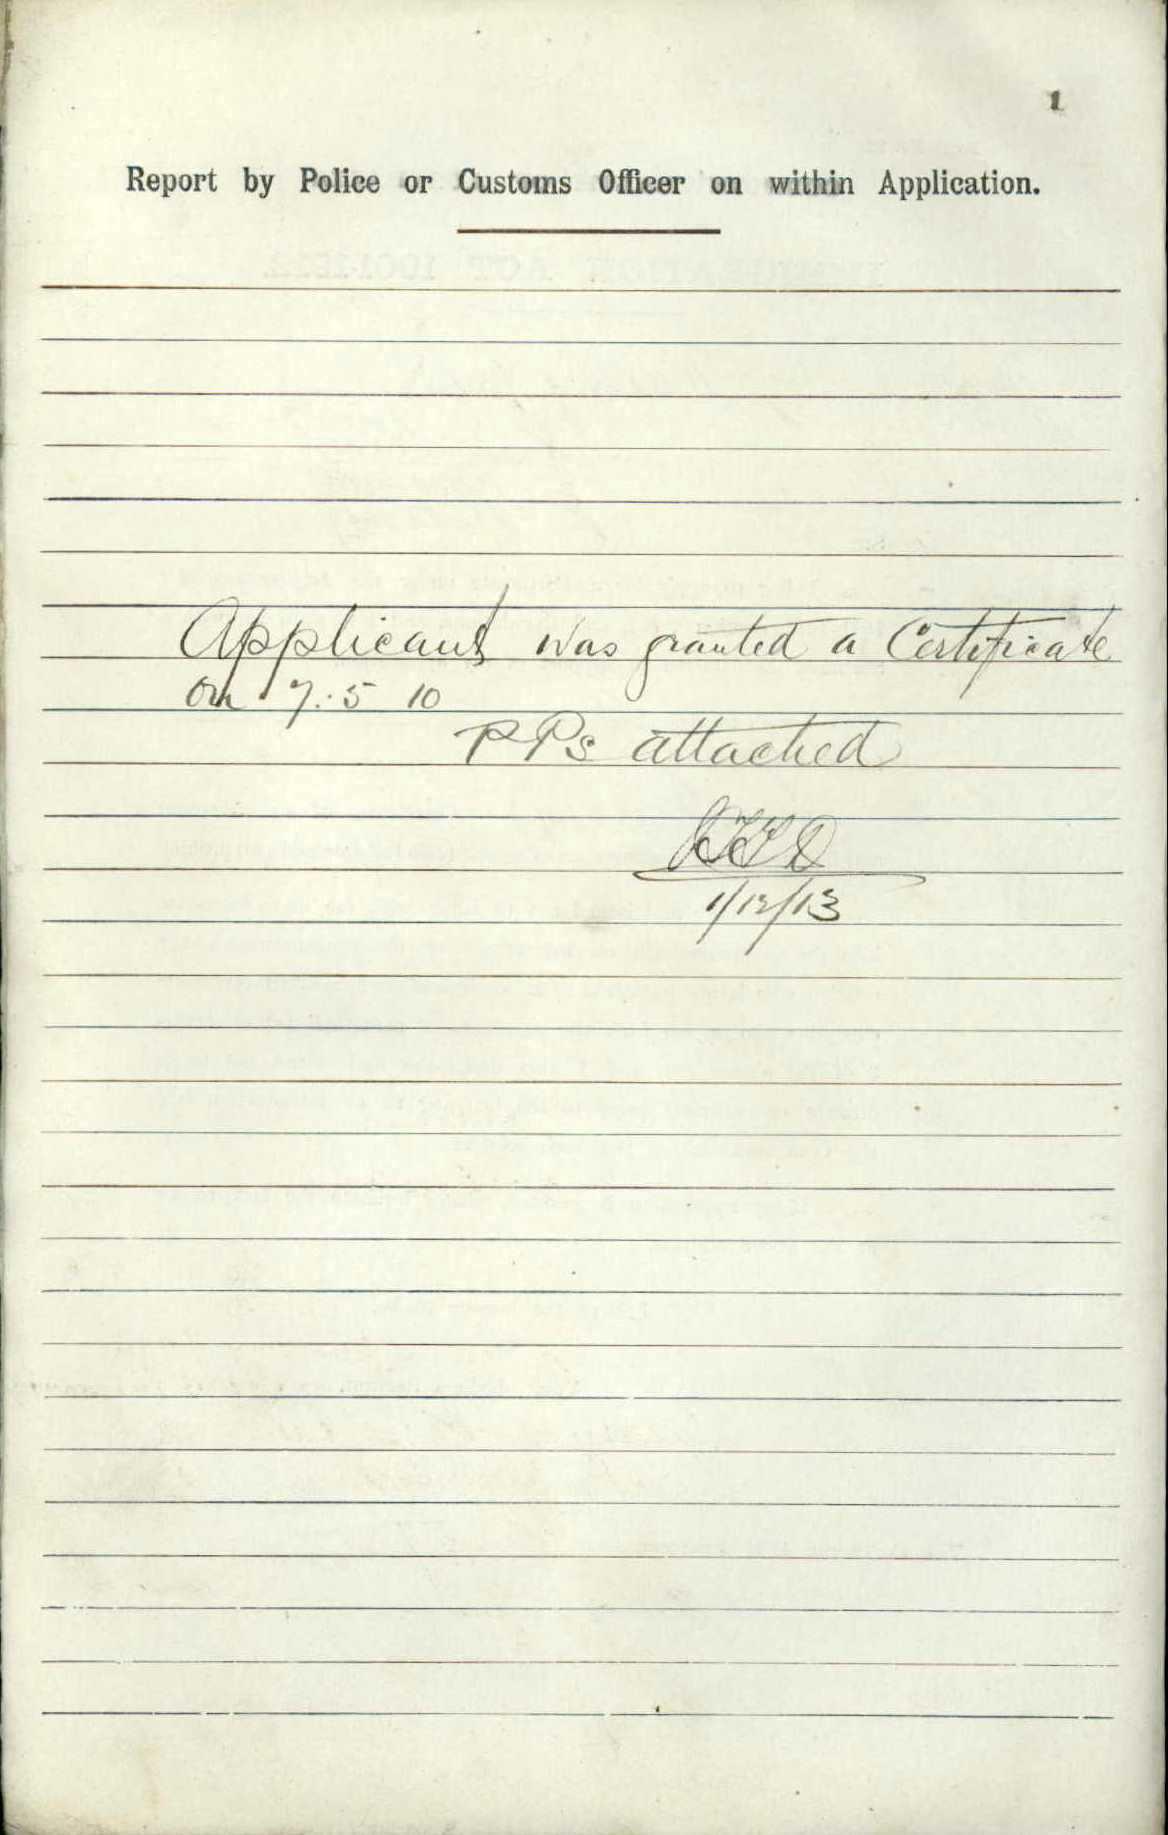 1
Report by Police or Customs Officer on within Application.
Applicant was granted a Certificate
on 7.5 10
PPs attached
1/12/13